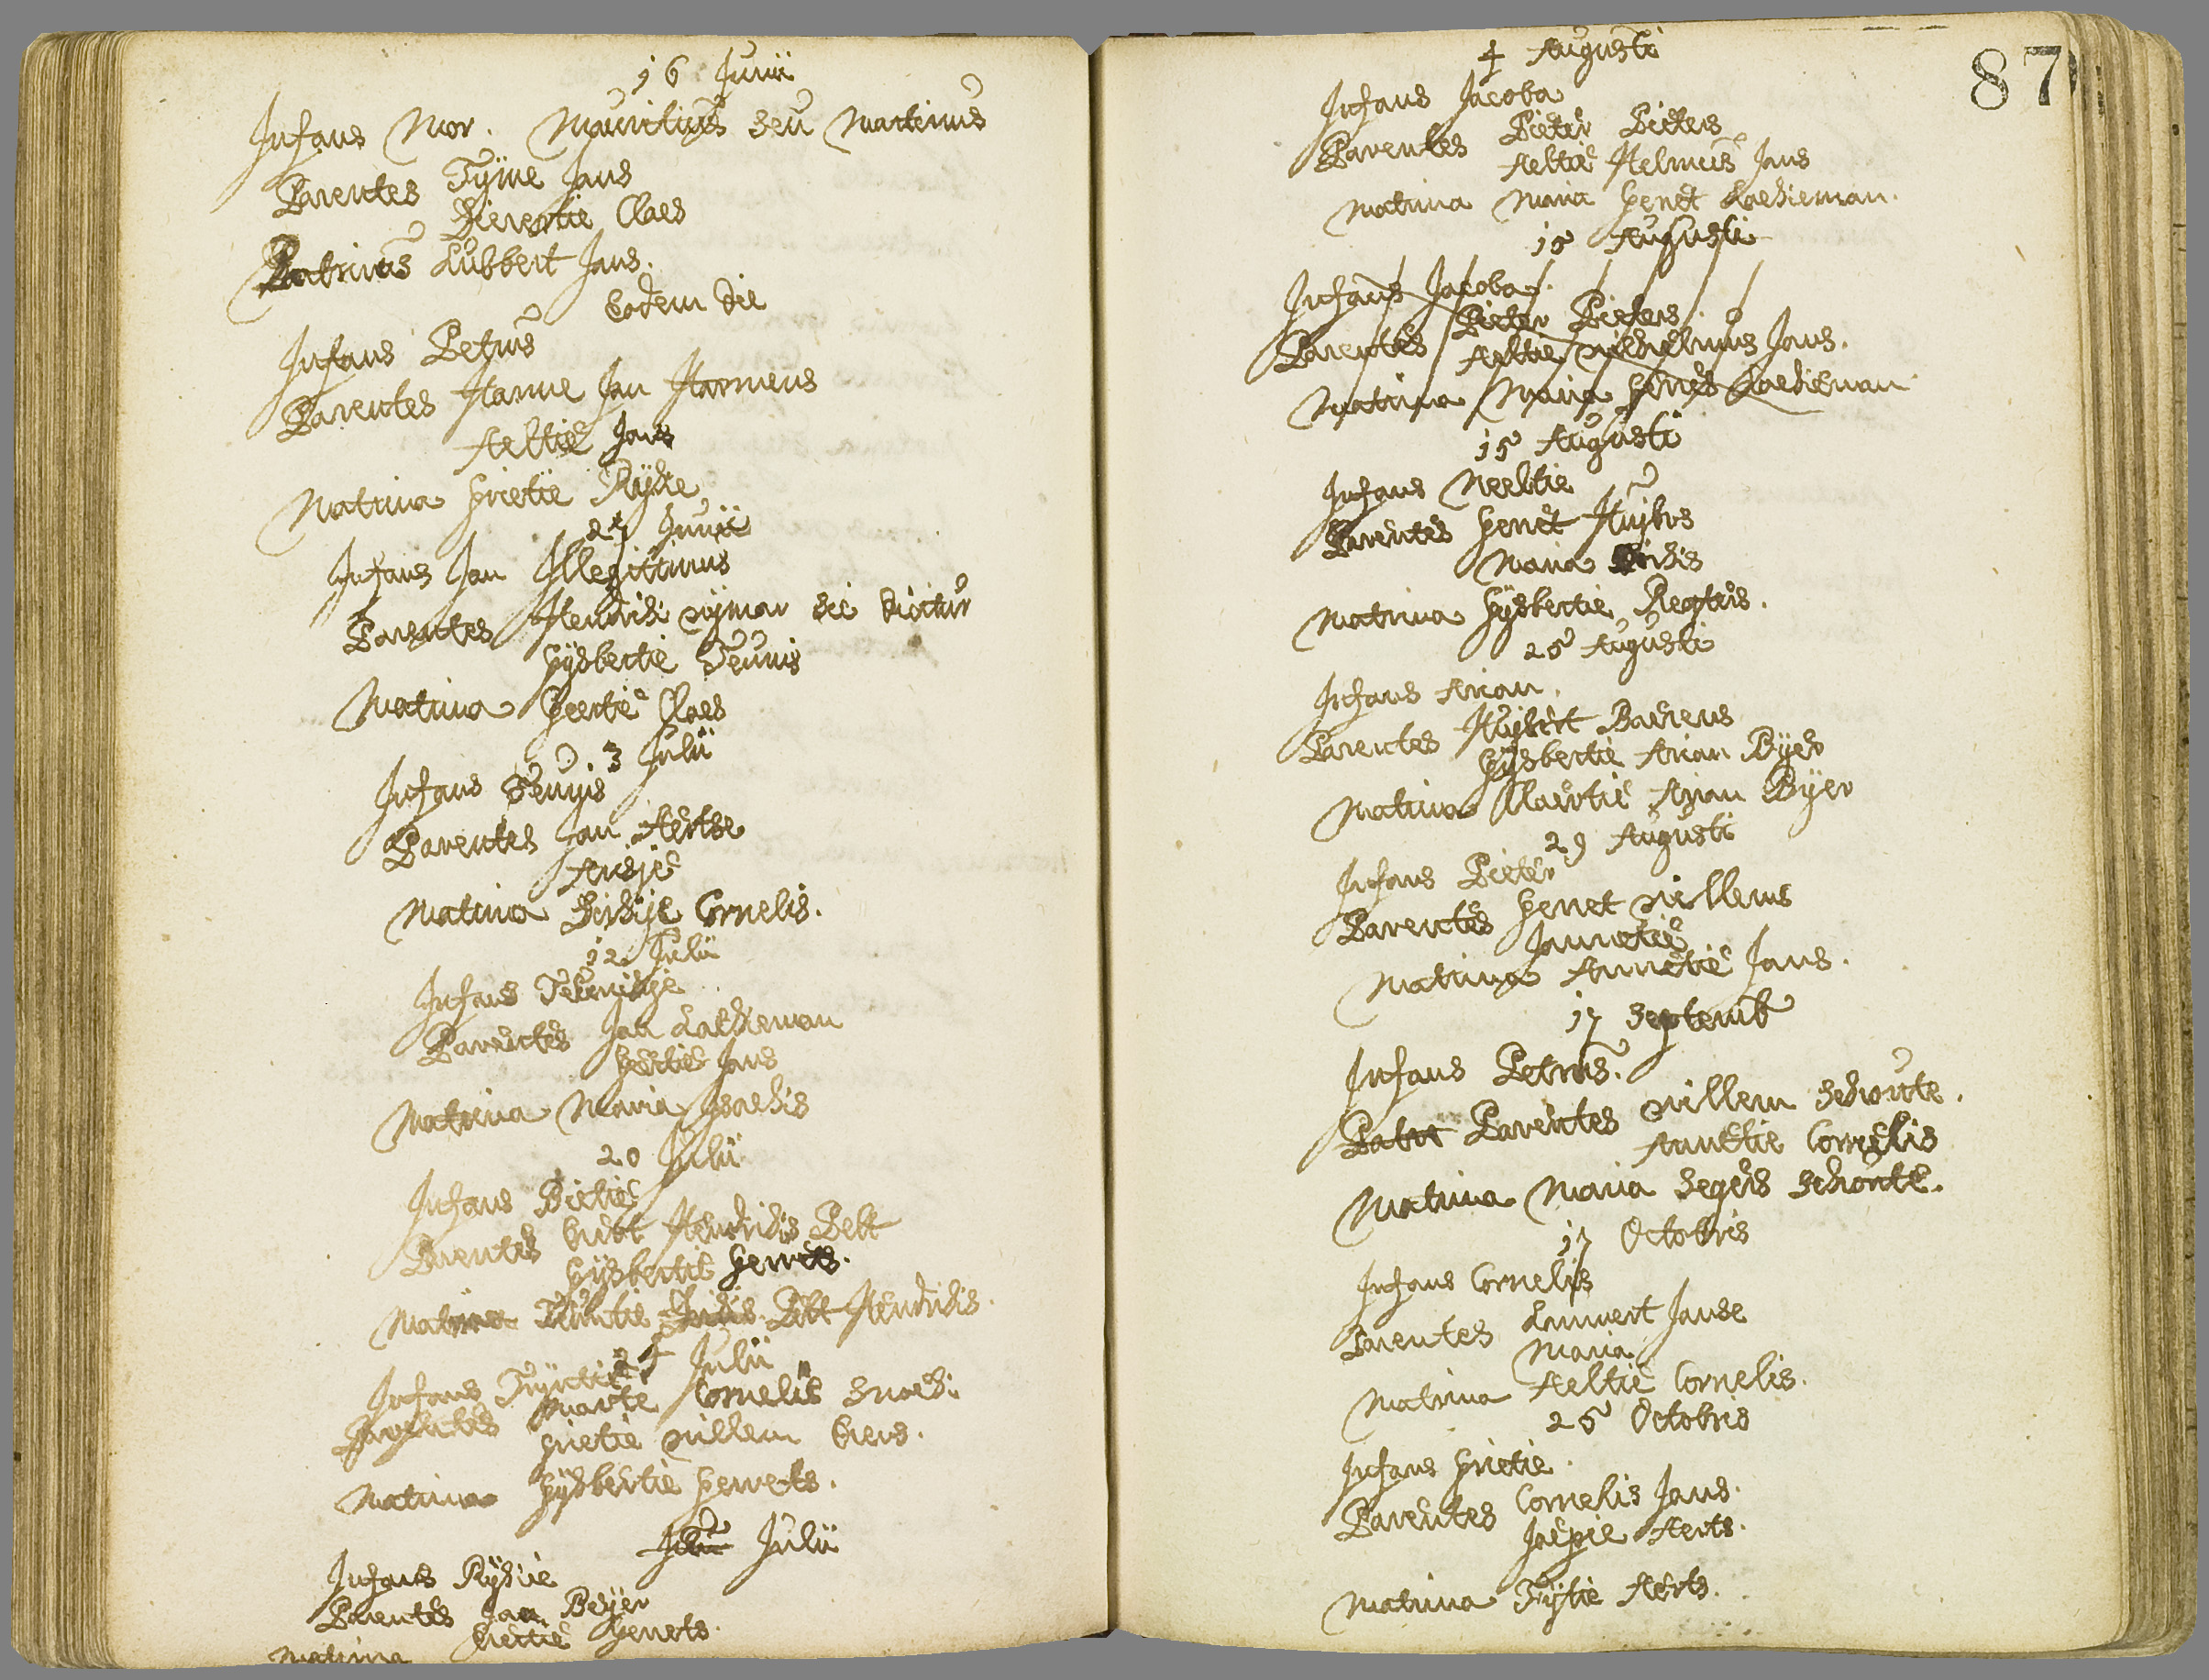 16 Junii
Infans Mor. Mauritius seu Martinus
Parentes Tijme Jans
Dievertie Claes
Patrinus Lubbert Jans.
Eodem die
Infans Petrus
Parentes Harme Jan Harmens
Aeltie Jans
Matrina Grietie Rijckx
27 Junii
Infans Jan Illegitimus
Parentes Hendrick sic dicitur
Gijsbertie Teunis
Matrina Geertie Claes
3 Julii
Infans Teunis
Parentes Jan Aertse
Ansje
Matrina Dirckje Cornelis.
12 Julii
Infans Teunisje
Parentes Jan Laeckeman
Geertie Jans
Matrina Maria Isaechs
20 Julii
Infans Pietie
Parentes Hendricks Pelt
Gijsbertie Gerrets.
Matrina Teuntie Pelt Hendricks.
24 Julii
Infans Trijntie
Parentes Marte Cornelis Snoeck
Grietie Willem
Matrina Gijsbertie Gerrets.
Julii
Infans Rijckie
Parentes Jan Beijer
Gerrets.
Matrina
87
4 Augusti
Infans Jacoba
Parentes Pieter Pieters
Aeltie Helmus Jans
Matrina Maria Gerret Laeckeman.
15 Augusti
Infans Jacoba.
Parentes Pieter Pieters
Aeltie Wilhelmus Jans.
Matrina Maria Gerrets Laeckeman
15 Augusti
Infans Neeltie
Parentes Gerret Huijbers
Maria Dircks
Matrina Gijsbertie
25 Augusti
Infans Arian.
Parentes Huijbert Barens
Gijsbertie Arian Bijer
Matrina Claertie Arian Bijer
29 Augusti
Infans Pieter
Parentes Gerret Willems
Jannetie
Matrina Annetie Jans.
17 Septemb
Infans Petrus.
Patri Parentes Willem Schoute.
Annetie Cornelis
Matrina Maria Segers Schoute.
17 Octobris
Infans Cornelis
Parentes Lammert Janse
Maria
Matrina Aeltie Cornelis.
25 Octobris
Infans Grietie.
Parentes Cornelis Jans.
Jaepie Aerts.
Matrina Fijtie Aerts.